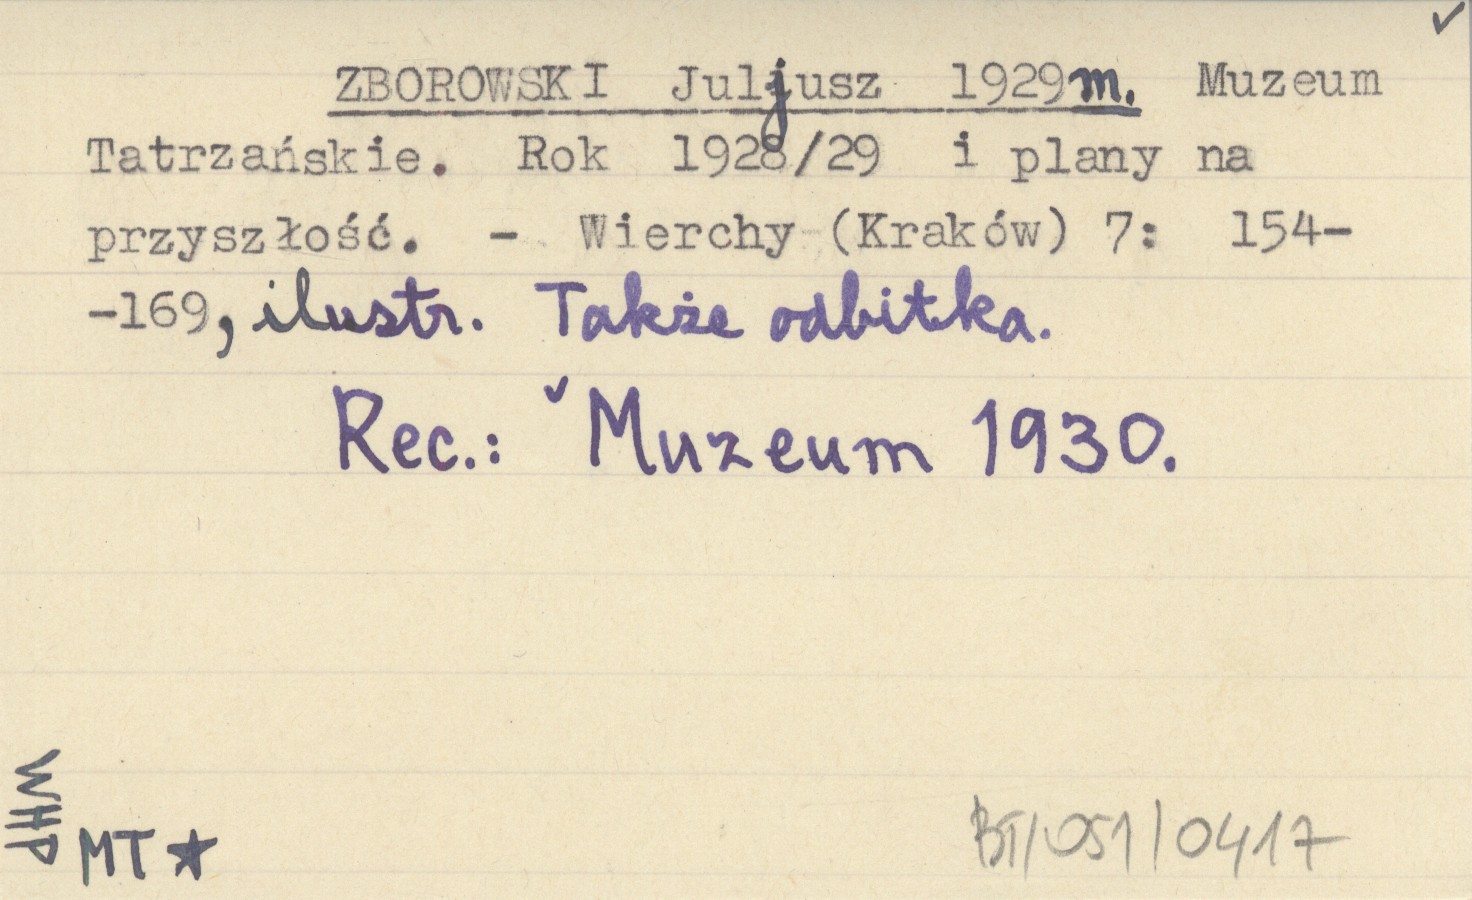 ZBOROWSKI Juljusz 1929m. Muzeum
Tatrzańskie. Rok 1928/29 i plany na
przyszłość. - Wierchy (Kraków) 7: 154-
-169, ilustr. Także odbitka.
Rec.: Muzeum 1930.
WHP
MT
BT/051/0417